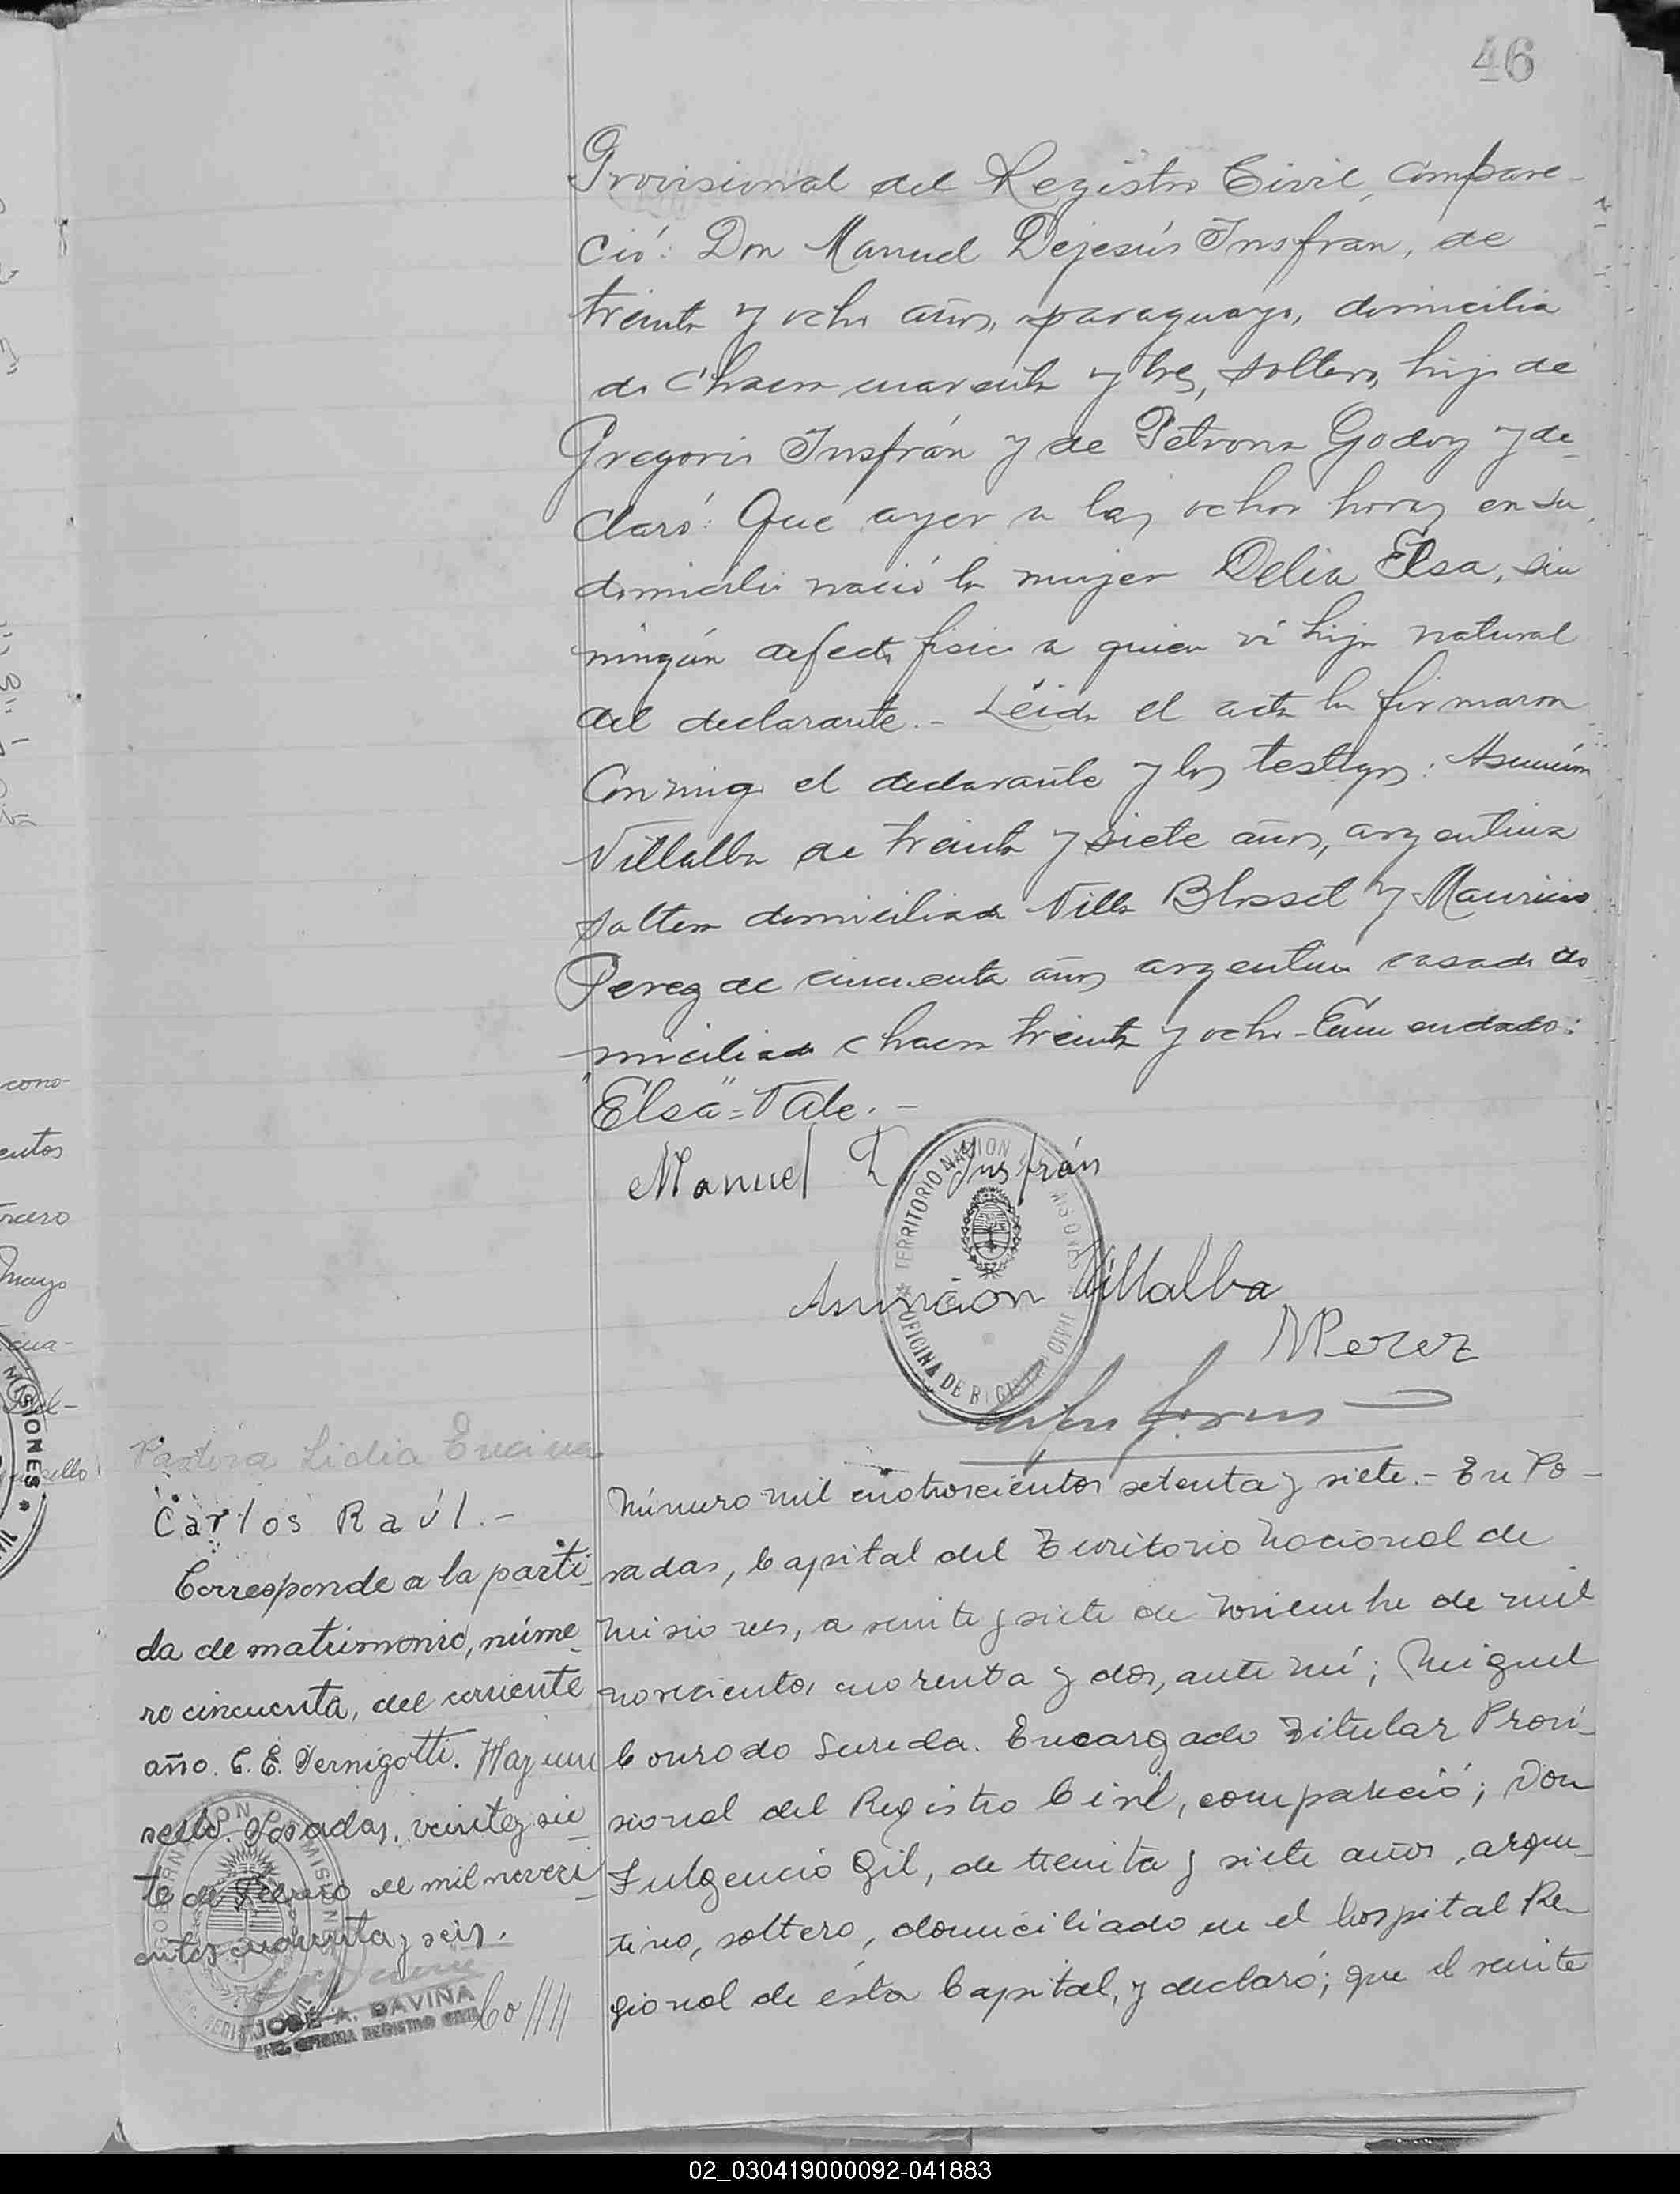 46
Provisional del Registro Civil, compare-
ció: Don Manuel Dejesús Insfran, de
treinta y ocho años, paraguayo, domicilia
do chacra cuarenta y tres, soltero, hijo de
Gregorio Insfrán y de Petrona Godoy y de-
claró: Que ayer a las ochos horas en su
domicilio nació la mujer Delia Elsa, sin
ningún defecto fisico a quien vi hija natural
del declarante.- Leida el acta la firmaron
Conmigo el declarante y los testigos: Asunción
Villalba de treinta y siete años, argentina
soltera domiciliada Villa Blosset y Mauricio
Perez de cincuenta años argentino casado do
miciliado chacra treinta y ocho-Enmendado:
"Elsa"=Vale.-
Manuel D Insfrán
TERRITORIO NACIONAL MISIONES
OFICINA DE REGISTRO CIVIL
Asunción Villalba
MPerez
Pastora Lidia Encina
Carlos Raúl.-
Corresponde a la parti-
da de matrimonio, núme-
ro cincuenta, del corriente
año. C. E. Pernigotti. Hay un
sello. Posadas, veinte y sie-
te de Febrero de mil noveci-
entos cuarenta y seis.
GOBERNACION MISIONES
JOSÉ A. DAVIÑA
ENC. OFICINA REGISTRO CIVIL
Número mil cuatrocientos setenta y siete.- En Po-
sadas, Capital del Territorio Nacional de
Misiones, a veinte y siete de Noviembre de mil
novecientos cuarenta y dos, ante mí; Miguel
Conrado Sureda. Encargado Titular Provi-
sional del Registro Civil, compareció; Don
Fulgencio Gil, de treinta y siete años, argen-
tino, soltero, domiciliado en el hospital Re-
gional de ésta Capital, y declaró; que el veinte
cono-
entos
rcero
Mayo
cua-
sello
MISIONES
02_030419000092-041883